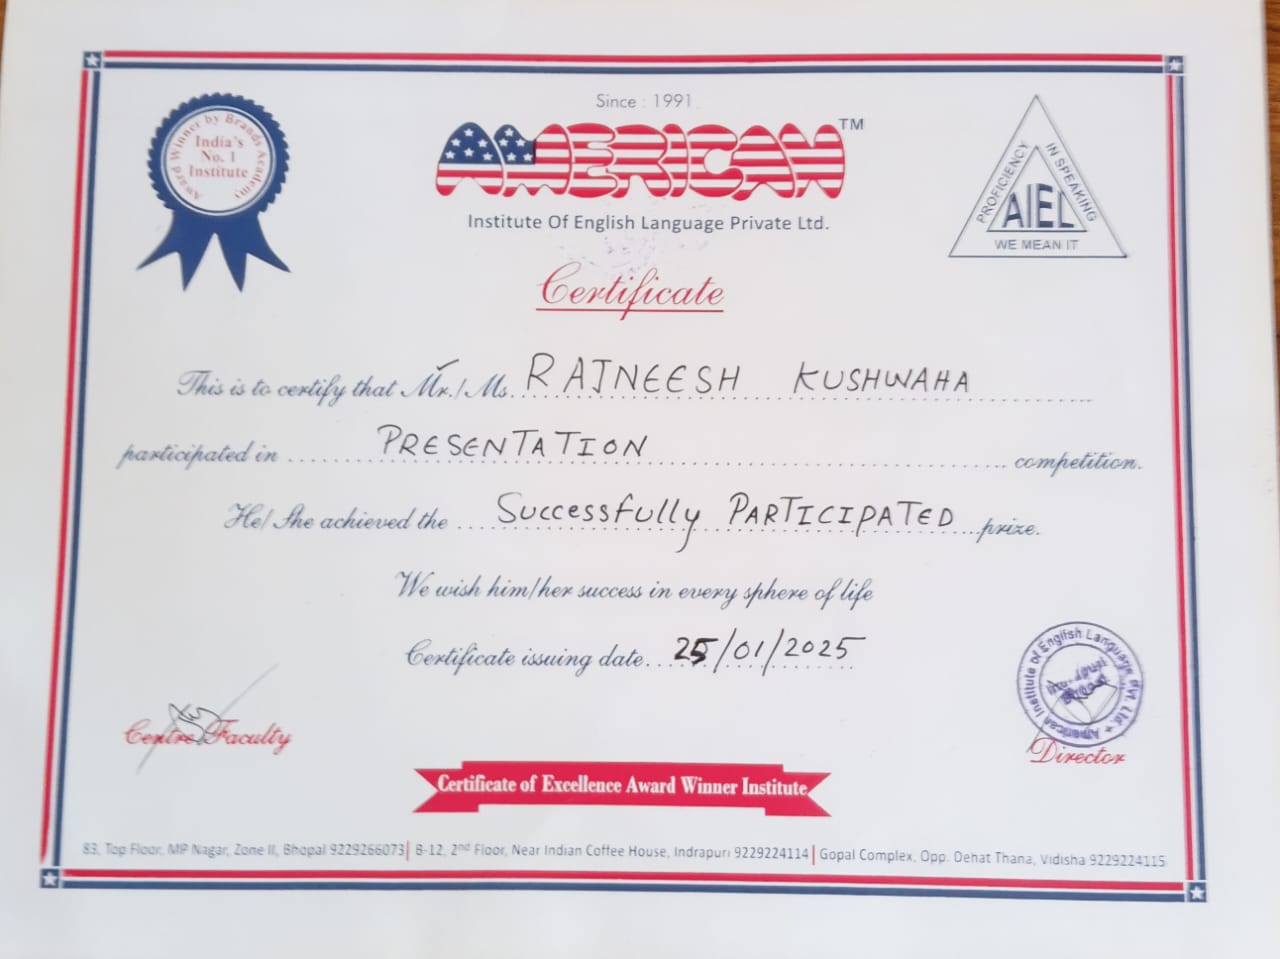 Since : 1991
AMERICAN TM
Institute Of English Language Private Ltd.
Award Winner by Brands Academy
India's
No. 1
Institute
PROFICIENCY IN SPEAKING
AIEL
WE MEAN IT
Certificate
This is to certify that Mr./Ms. RAJNEESH KUSHWAHA
participated in PRESENTATION competition.
He/She achieved the Successfully PARTICIPATED prize.
We wish him/her success in every sphere of life
Certificate issuing date 25/01/2025
American Institute of English Language Pvt. Ltd.
Centre Faculty
Director
Certificate of Excellence Award Winner Institute
83, Top Floor, MP Nagar, Zone II, Bhopal 9229266073| B-12, 2nd Floor, Near Indian Coffee House, Indrapuri 9229224114| Gopal Complex, Opp. Dehat Thana, Vidisha 9229224115